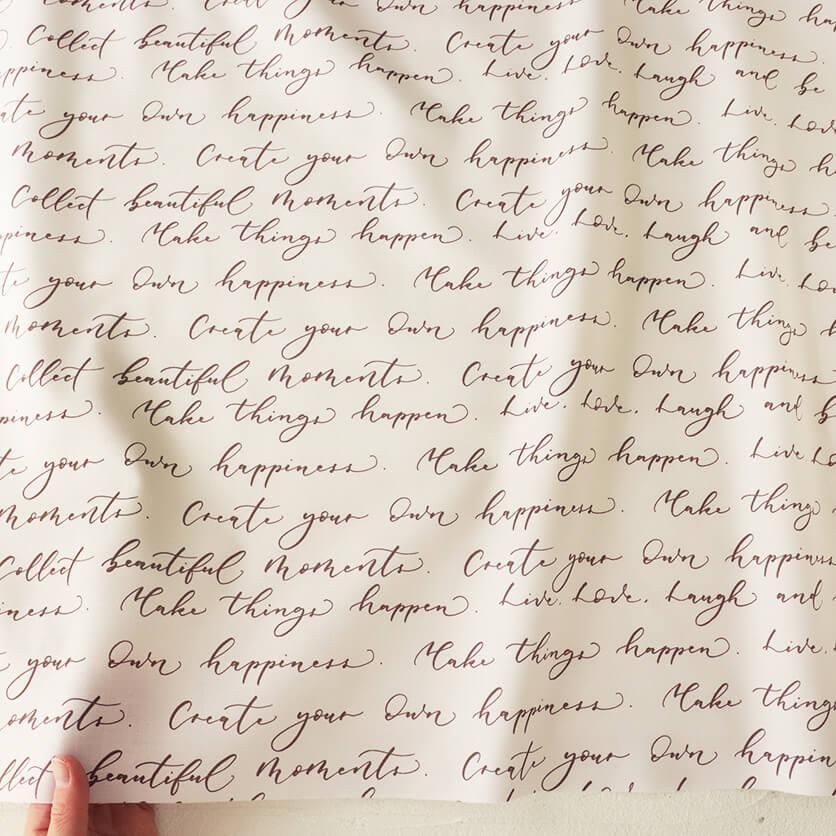 Create your own happiness. Make things
Collect beautiful moments. Create your own happiness.
happiness. Make things happen. Live. Love. Laugh and be
your own happiness. Make things happen. Live. Love
moments. Create your own happiness. Make things
Collect beautiful moments. Create your own happiness
Make things happen. Live. Love. Laugh and be
your own happiness. Make things happen. Live. Lov
moments. Create your own happiness. Make things
Collect beautiful moments. Create your own happiness
Make things happen. Live. Love. Laugh and b
your own happiness. Make things happen. Live. Lo
moments. Create your own happiness. Make things
Collect beautiful moments. Create your own happiness
Make things happen. Live. Love. Laugh and
your own happiness. Make things happen. Live.
moments. Create your own happiness. Make things
beautiful moments. Create your own happin